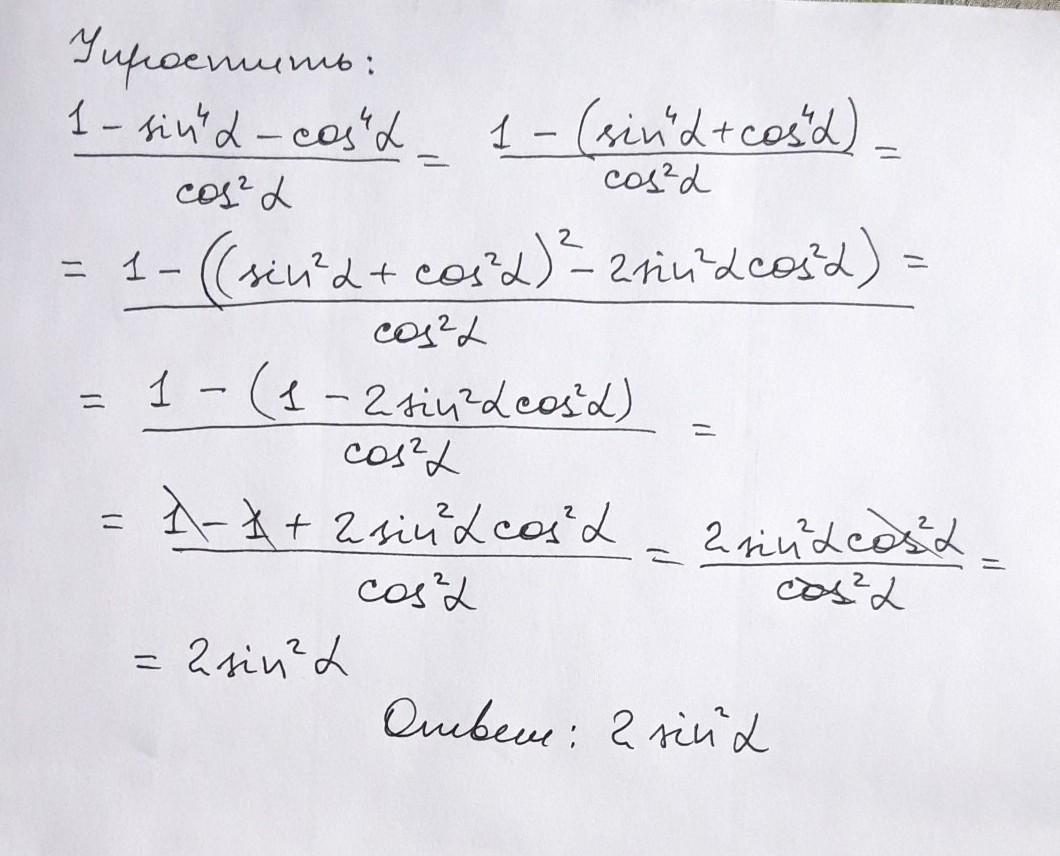 Упростить:
(1 - sin⁴α - cos⁴α)/cos²α = (1 - (sin⁴α + cos⁴α))/cos²α =
= (1 - ((sin²α + cos²α)² - 2sin²αcos²α))/cos²α =
= (1 - (1 - 2sin²αcos²α))/cos²α =
= (1 - 1 + 2sin²αcos²α)/cos²α = (2sin²αcos²α)/cos²α =
= 2sin²α
Ответ: 2 sin²α